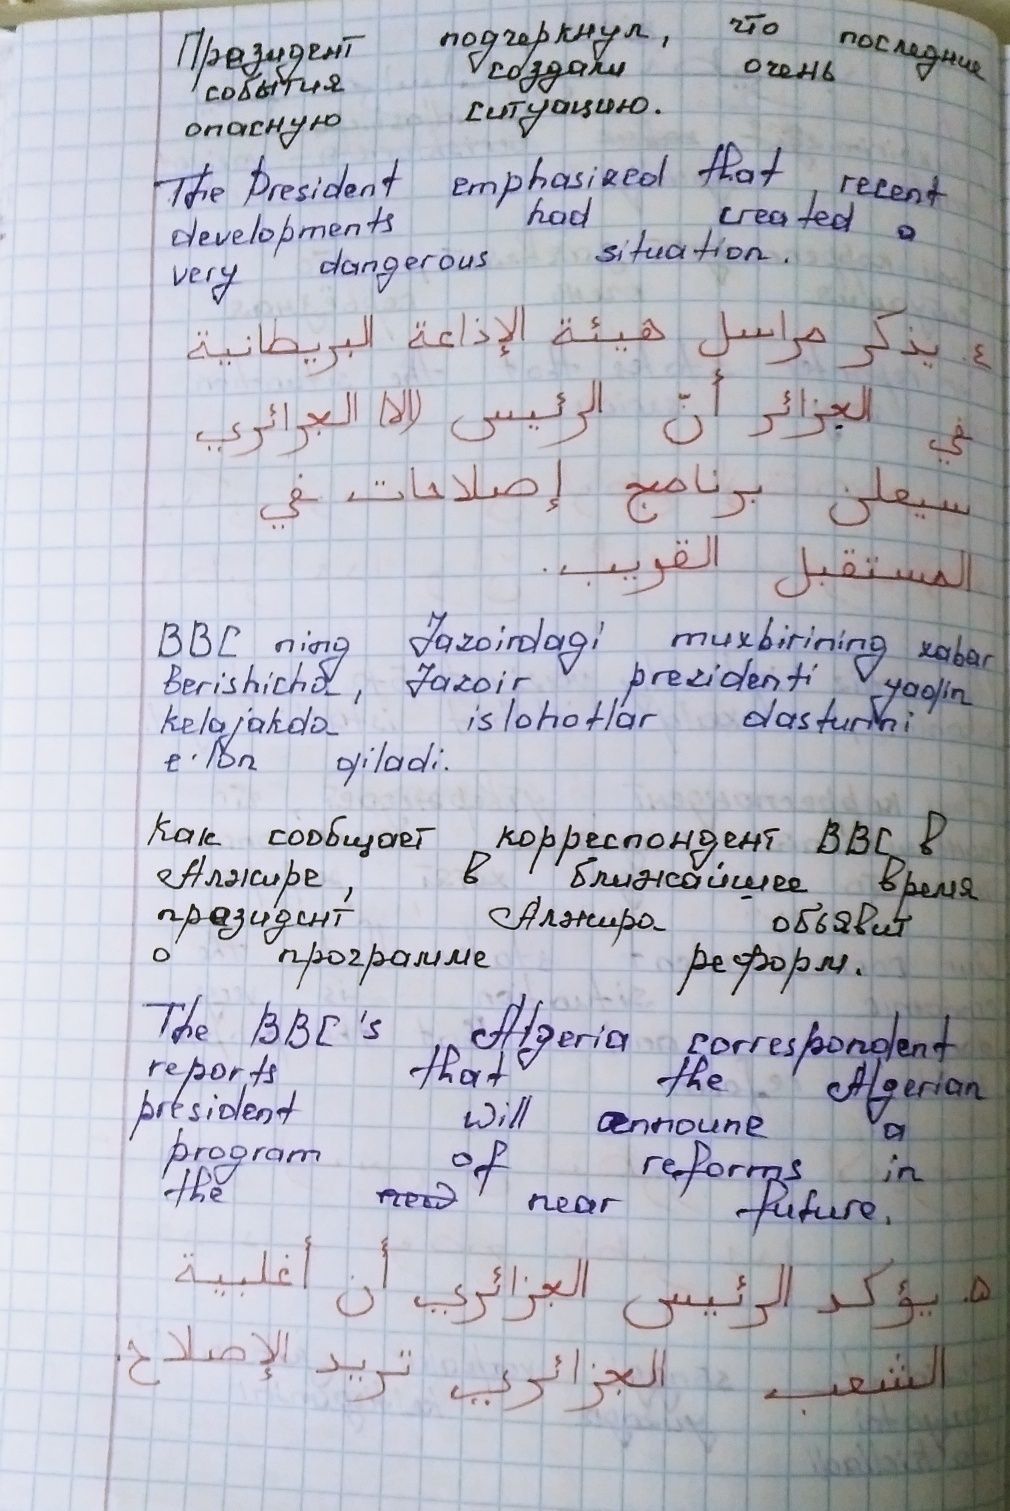 Президент подчеркнул, что последние
события создали очень
опасную ситуацию.
The President emphasized that recent
developments had created a
very dangerous situation.
٤. يذكر مراسل هيئة الإذاعة البريطانية
في الجزائر أنّ الرئيس (الا) الجزائري
سيعلن برنامج إصلاحات في
المستقبل القريب.
BBC ning Jazoirdagi muxbirining xabar
berishicha, Jazoir prezidenti yaqin
kelajakda islohotlar dasturini
e'lon qiladi.
Как сообщает корреспондент BBC в
Алжире, в ближайшее время
президент Алжира объявит
о программе реформ.
The BBC's Algeria correspondent
reports that the Algerian
president will announe a
program of reforms in
the new near future.
٥. يؤكد الرئيس الجزائري أن أغلبية
الشعب الجزائري تريد الإصلاح.